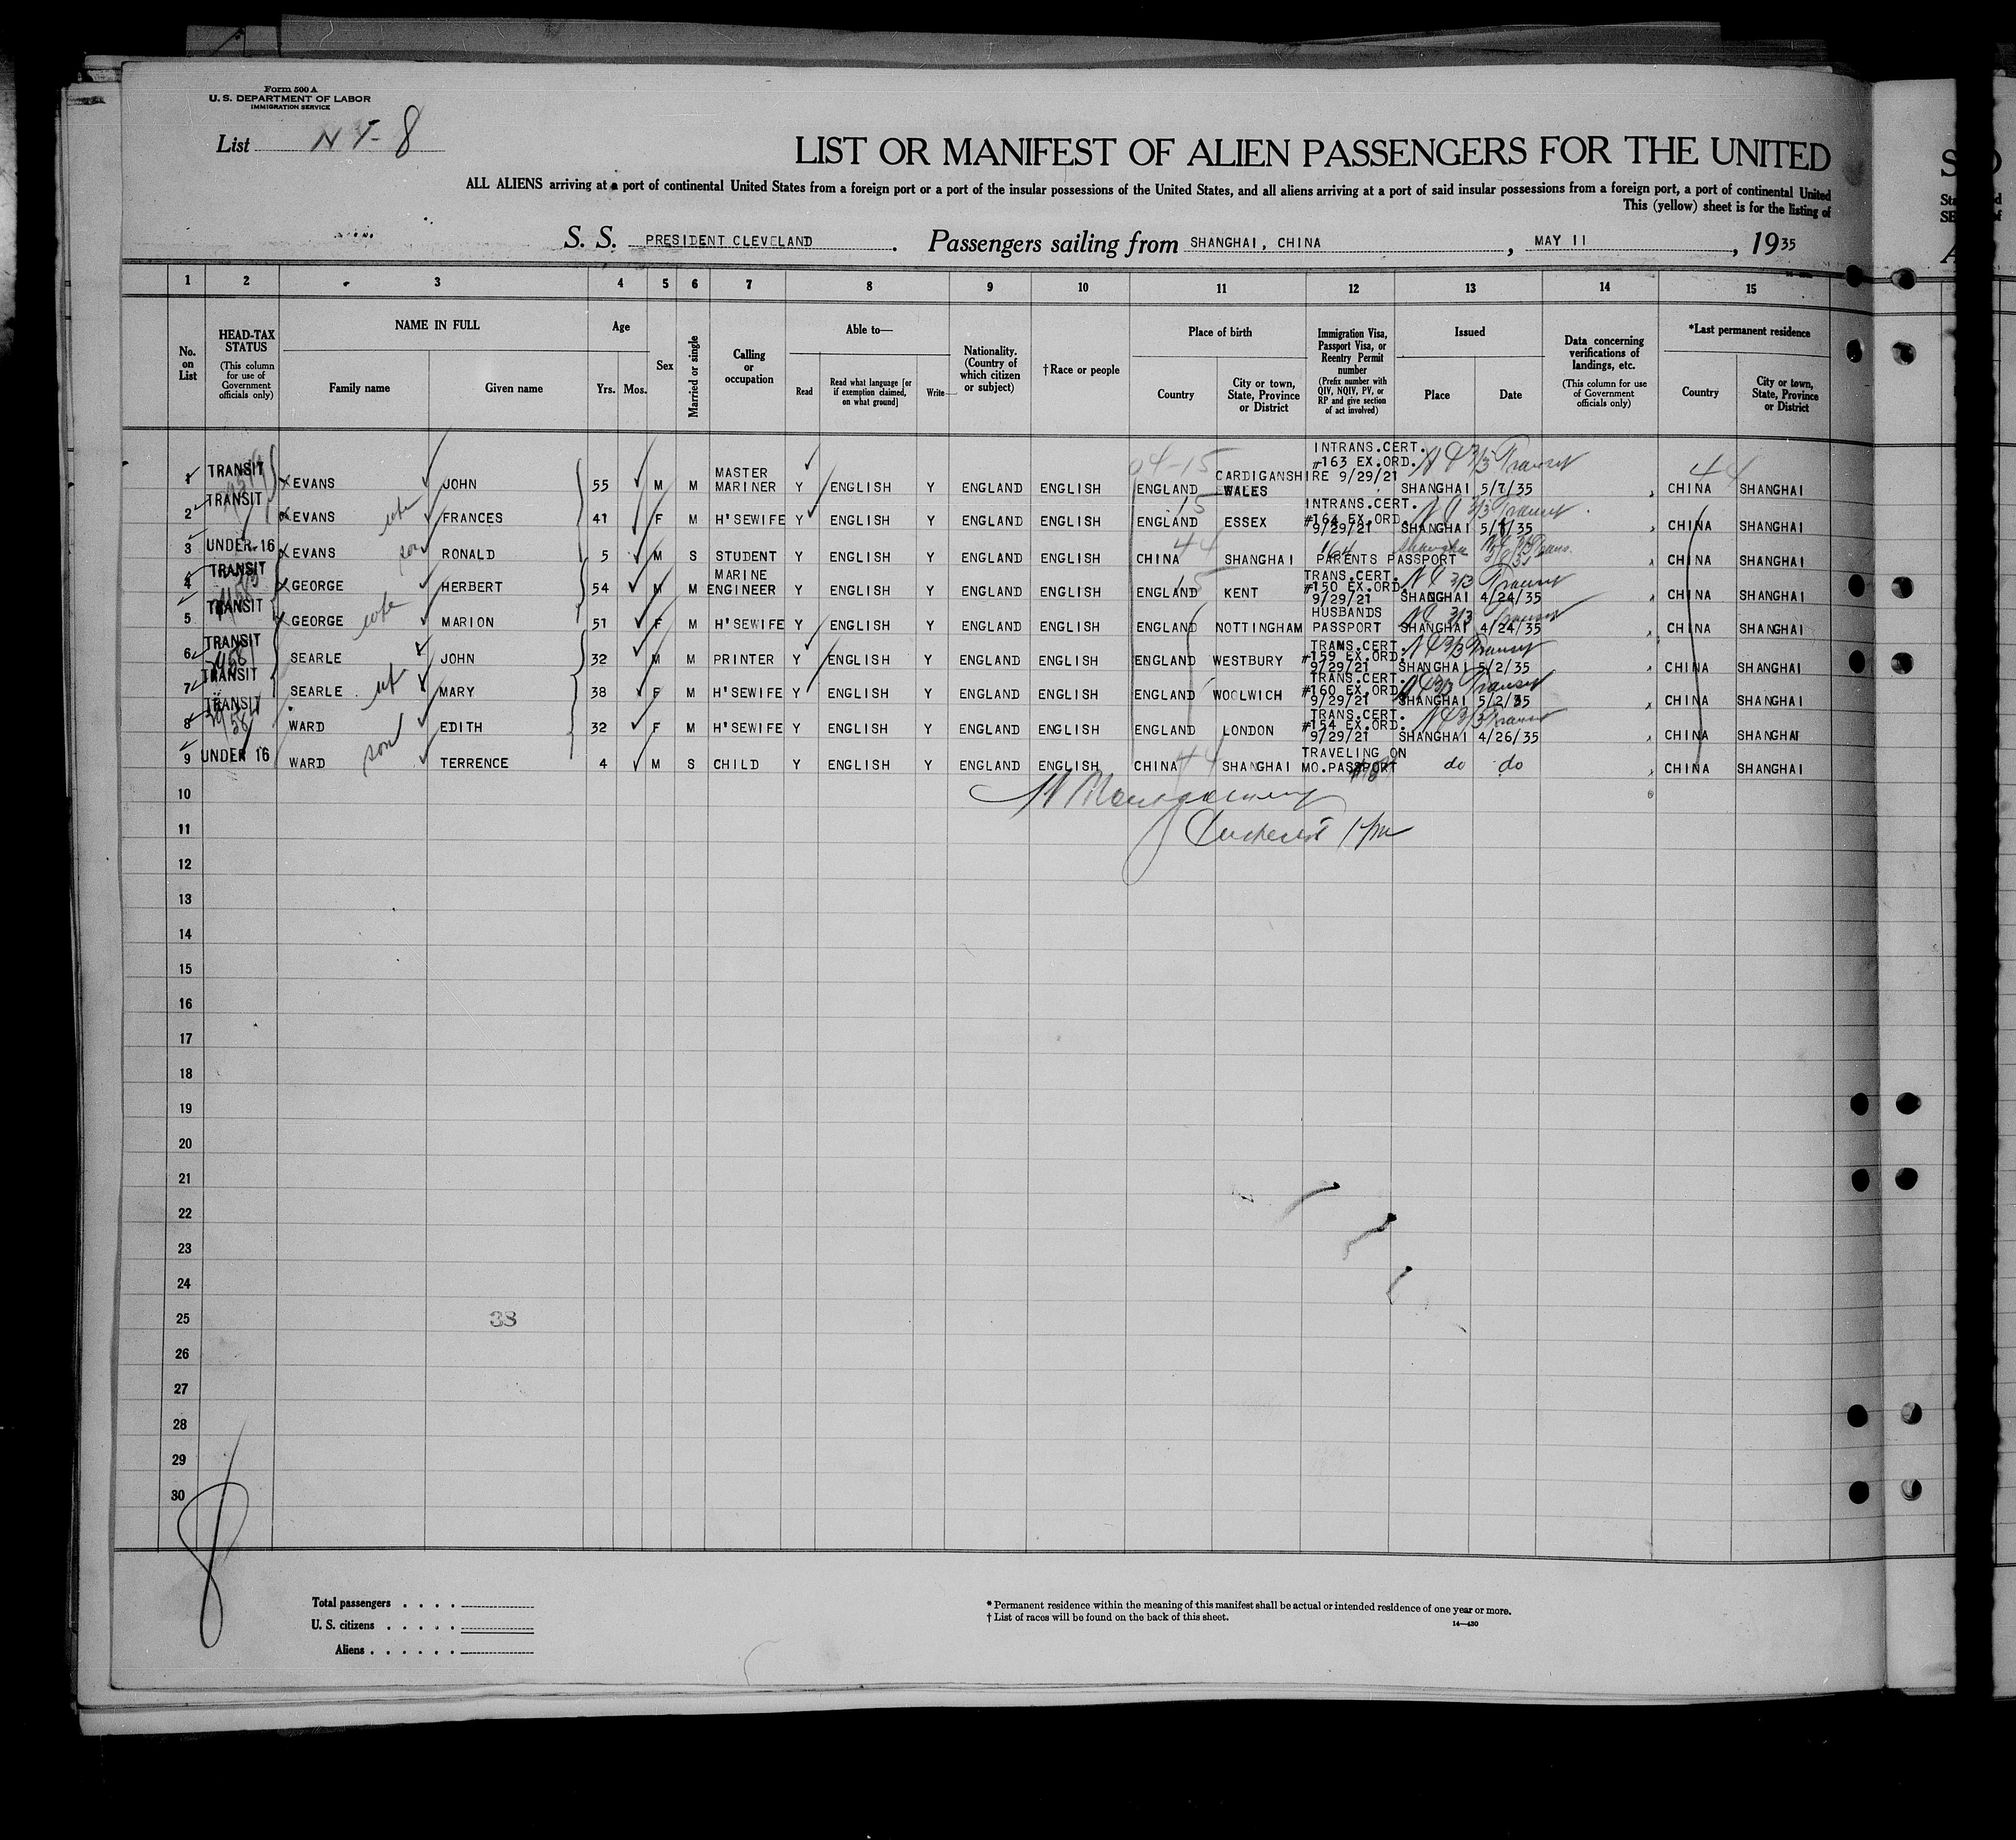 Form 500 A
U. S. DEPARTMENT OF LABOR
IMMIGRATION SERVICE
List NY-8
LIST OR MANIFEST OF ALIEN PASSENGERS FOR THE UNITED
ALL ALIENS arriving at a port of continental United States from a foreign port or a port of the insular possessions of the United States, and all aliens arriving at a port of said insular possessions from a foreign port, a port of continental United
This (yellow) sheet is for the listing of
S. S. PRESIDENT CLEVELAND. Passengers sailing from SHANGHAI, CHINA, MAY 11, 1935
1 2 3 4 5 6 7 8 9 10 11 12 13 14 15
No. on List
HEAD-TAX STATUS (This column for use of Government officials only)
NAME IN FULL Family name Given name
Age Yrs. Mos.
Sex
Married or single
Calling or occupation
Able to— Read Read what language [or if exemption claimed, on what ground] Write
Nationality. (Country of which citizen or subject)
†Race or people
Place of birth Country City or town, State, Province or District
Immigration Visa, Passport Visa, or Reentry Permit number (Prefix number with QIV, NQIV, PV, or RP and give section of act involved)
Issued Place Date
Data concerning verifications of landings, etc. (This column for use of Government officials only)
*Last permanent residence Country City or town, State, Province or District
1 TRANSIT EVANS JOHN 55 M M MASTER MARINER Y ENGLISH Y ENGLAND ENGLISH 04-15 ENGLAND CARDIGANSHIRE WALES INTRANS.CERT. #163 EX.ORD. 9/29/21 Transit SHANGHAI 5/7/35 44 CHINA SHANGHAI
2 TRANSIT EVANS wife FRANCES 41 F M H'SEWIFE Y ENGLISH Y ENGLAND ENGLISH 15 ENGLAND ESSEX INTRANS.CERT. #164 EX.ORD. 9/29/21 3/3 Transit SHANGHAI 5/7/35 CHINA SHANGHAI
3 UNDER 16 EVANS son RONALD 5 M S STUDENT Y ENGLISH Y ENGLAND ENGLISH 44 CHINA SHANGHAI 164 PARENTS PASSPORT Shanghai CHINA SHANGHAI
4 TRANSIT GEORGE HERBERT 54 M M MARINE ENGINEER Y ENGLISH Y ENGLAND ENGLISH 15 ENGLAND KENT TRANS.CERT. #150 EX.ORD. 9/29/21 3/3 Transit SHANGHAI 4/24/35 CHINA SHANGHAI
5 TRANSIT GEORGE wife MARION 51 F M H'SEWIFE Y ENGLISH Y ENGLAND ENGLISH ENGLAND NOTTINGHAM HUSBANDS PASSPORT 3/3 Transit SHANGHAI 4/24/35 CHINA SHANGHAI
6 TRANSIT SEARLE JOHN 32 M M PRINTER Y ENGLISH Y ENGLAND ENGLISH ENGLAND WESTBURY TRANS.CERT. #159 EX.ORD. 9/29/21 3/3 Transit SHANGHAI 5/2/35 CHINA SHANGHAI
7 TRANSIT SEARLE wife MARY 38 F M H'SEWIFE Y ENGLISH Y ENGLAND ENGLISH ENGLAND WOOLWICH TRANS.CERT. #160 EX.ORD. 9/29/21 3/3 Transit SHANGHAI 5/2/35 CHINA SHANGHAI
8 TRANSIT WARD EDITH 32 F M H'SEWIFE Y ENGLISH Y ENGLAND ENGLISH ENGLAND LONDON TRANS.CERT. #154 EX.ORD. 9/29/21 3/3 Transit SHANGHAI 4/26/35 CHINA SHANGHAI
9 UNDER 16 WARD son TERRENCE 4 M S CHILD Y ENGLISH Y ENGLAND ENGLISH CHINA 44 SHANGHAI TRAVELING ON MO.PASSPORT do do CHINA SHANGHAI
10 Montgomery
11
12
13
14
15
16
17
18
19
20
21
22
23
24
25 38
26
27
28
29
30
8
Total passengers
U. S. citizens
Aliens
* Permanent residence within the meaning of this manifest shall be actual or intended residence of one year or more.
† List of races will be found on the back of this sheet.
14—430